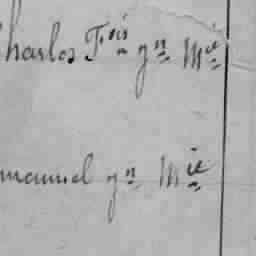 Charles Frçis gn Mie
mmanuel gn Mie